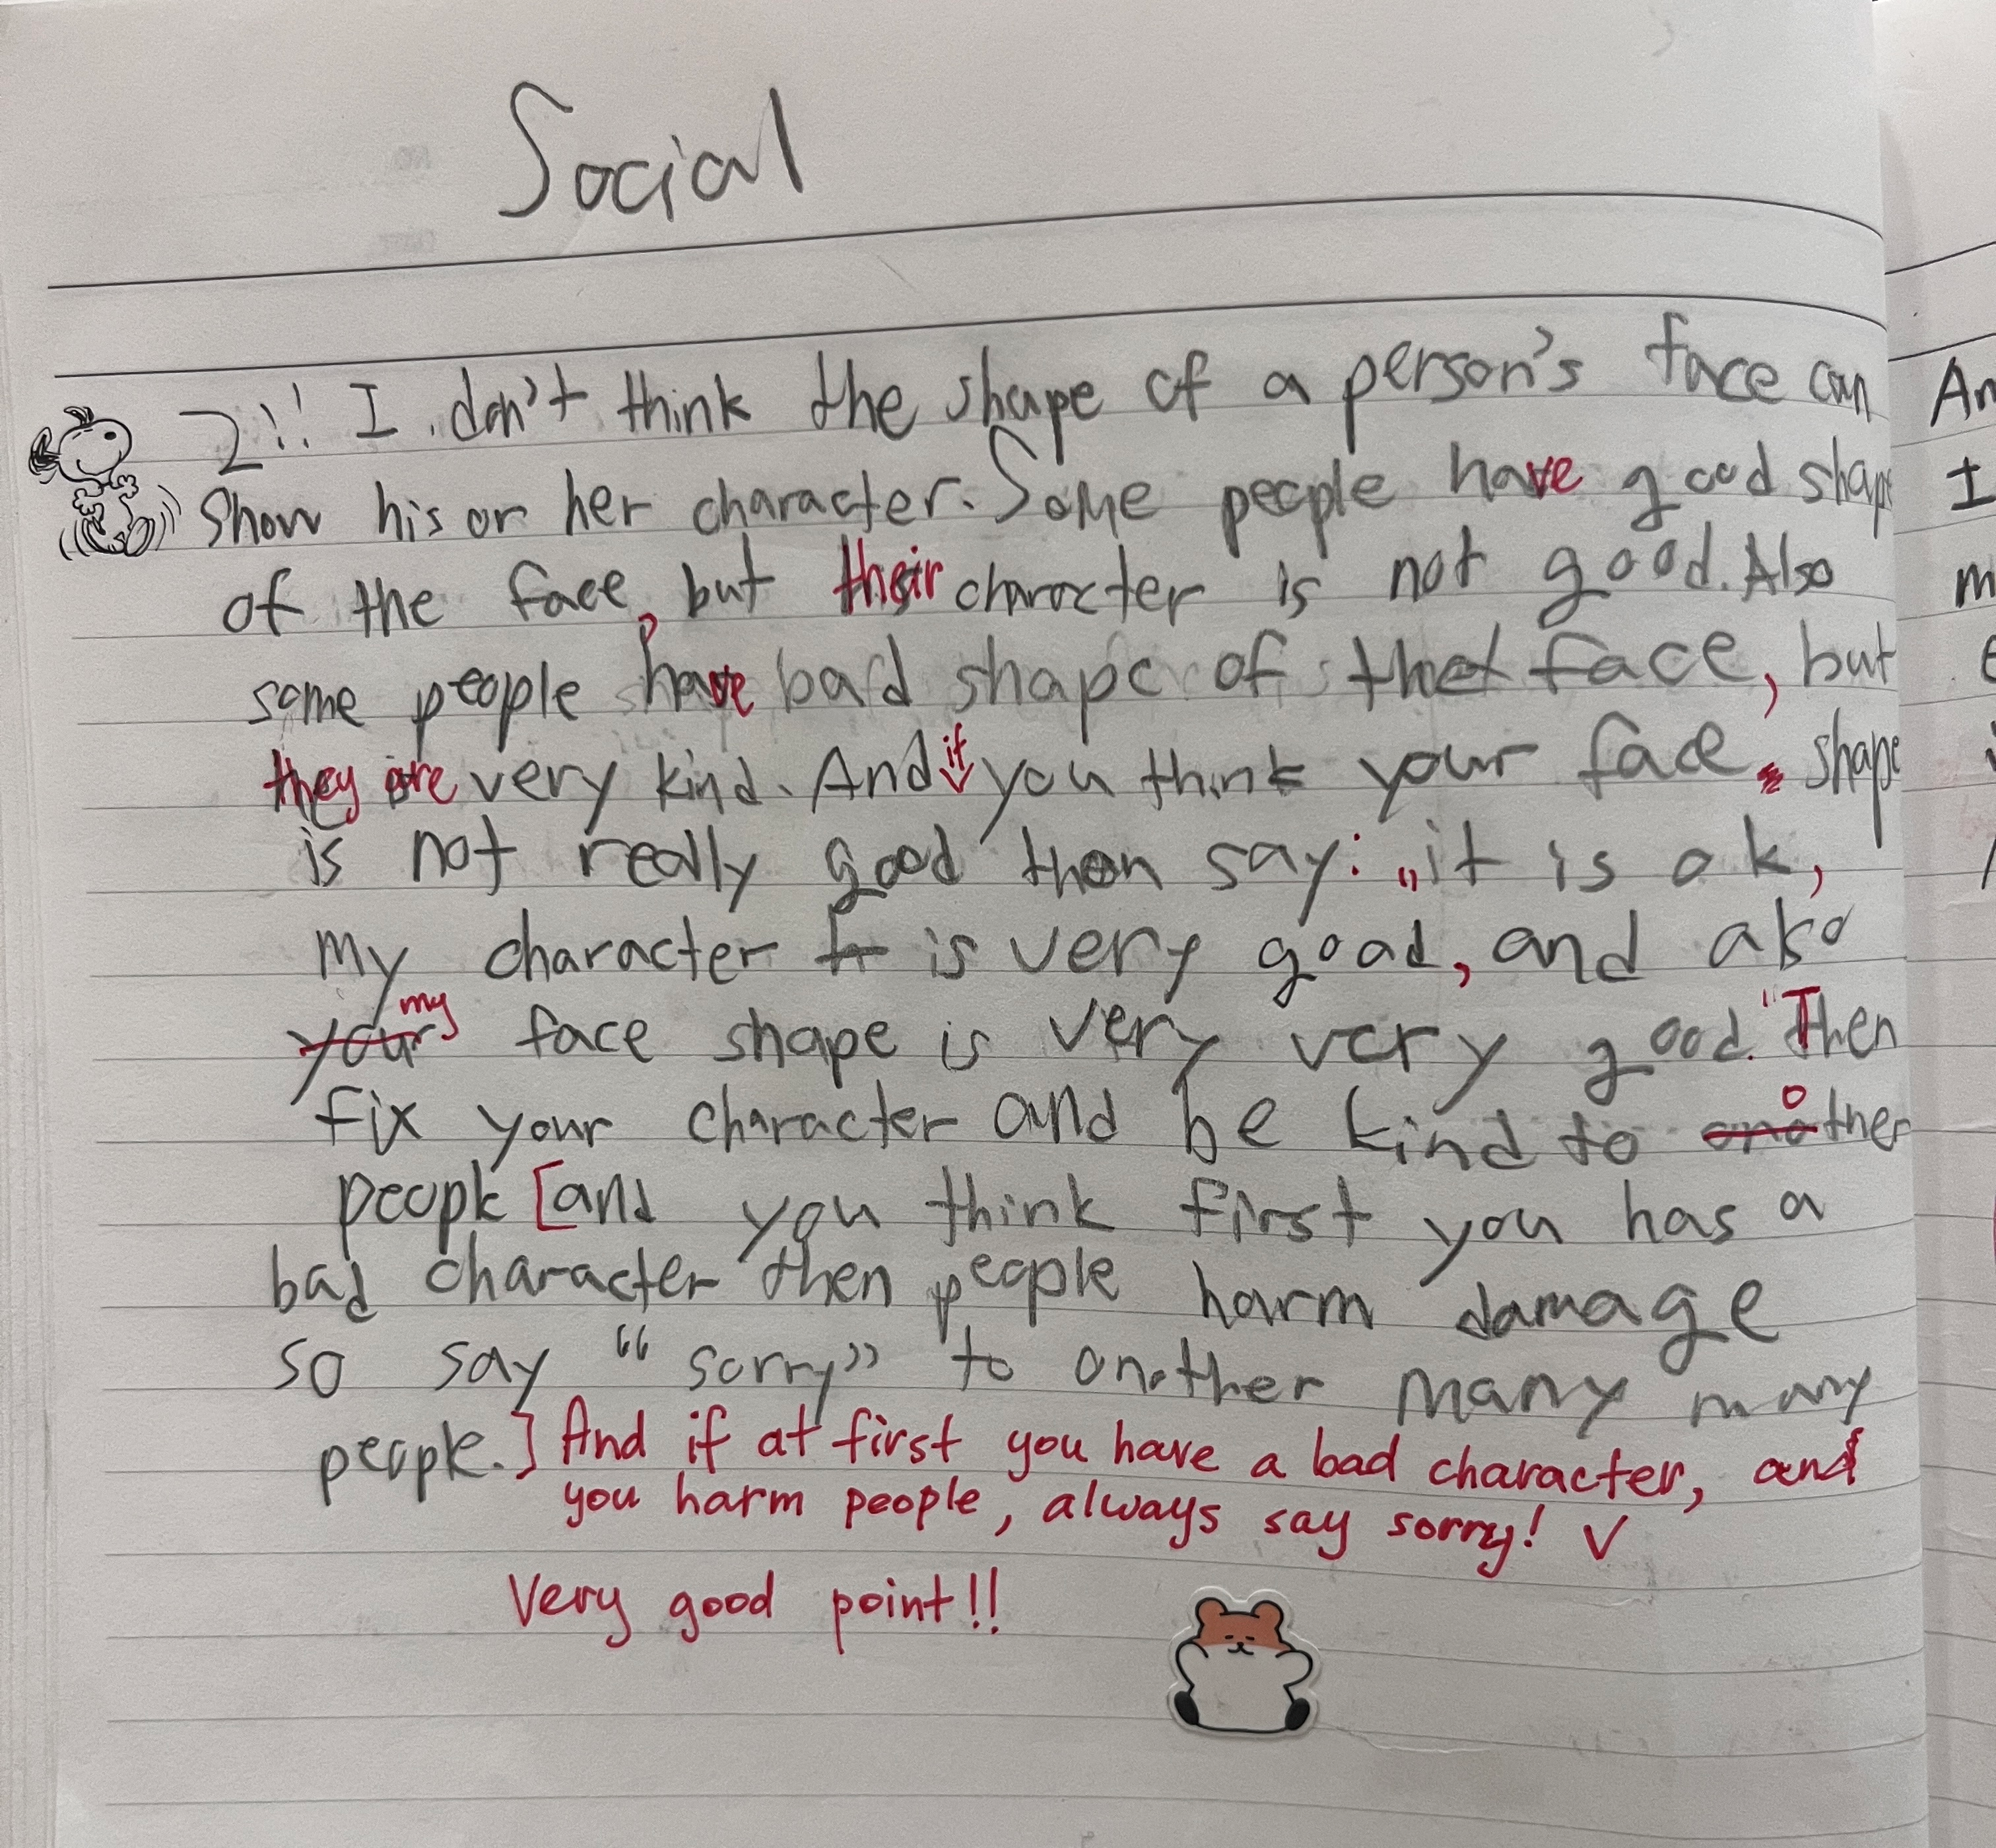 Social
2!! I don't think the shape of a person's face can
show his or her character. Some people have good shape
of the face, but their character is not good. Also
some people have bad shape of the face, but
they are very kind. And if you think your face shape
is not really good then say: „it is ok,
my character is very good, and also
your my face shape is very very good." Then
fix your character and be kind to another
people [and you think first you has a
bad character then people harm damage
so say “sorry” to another many many
people.] And if at first you have a bad character, and
you harm people, always say sorry! V
Very good point!!
An
I
m